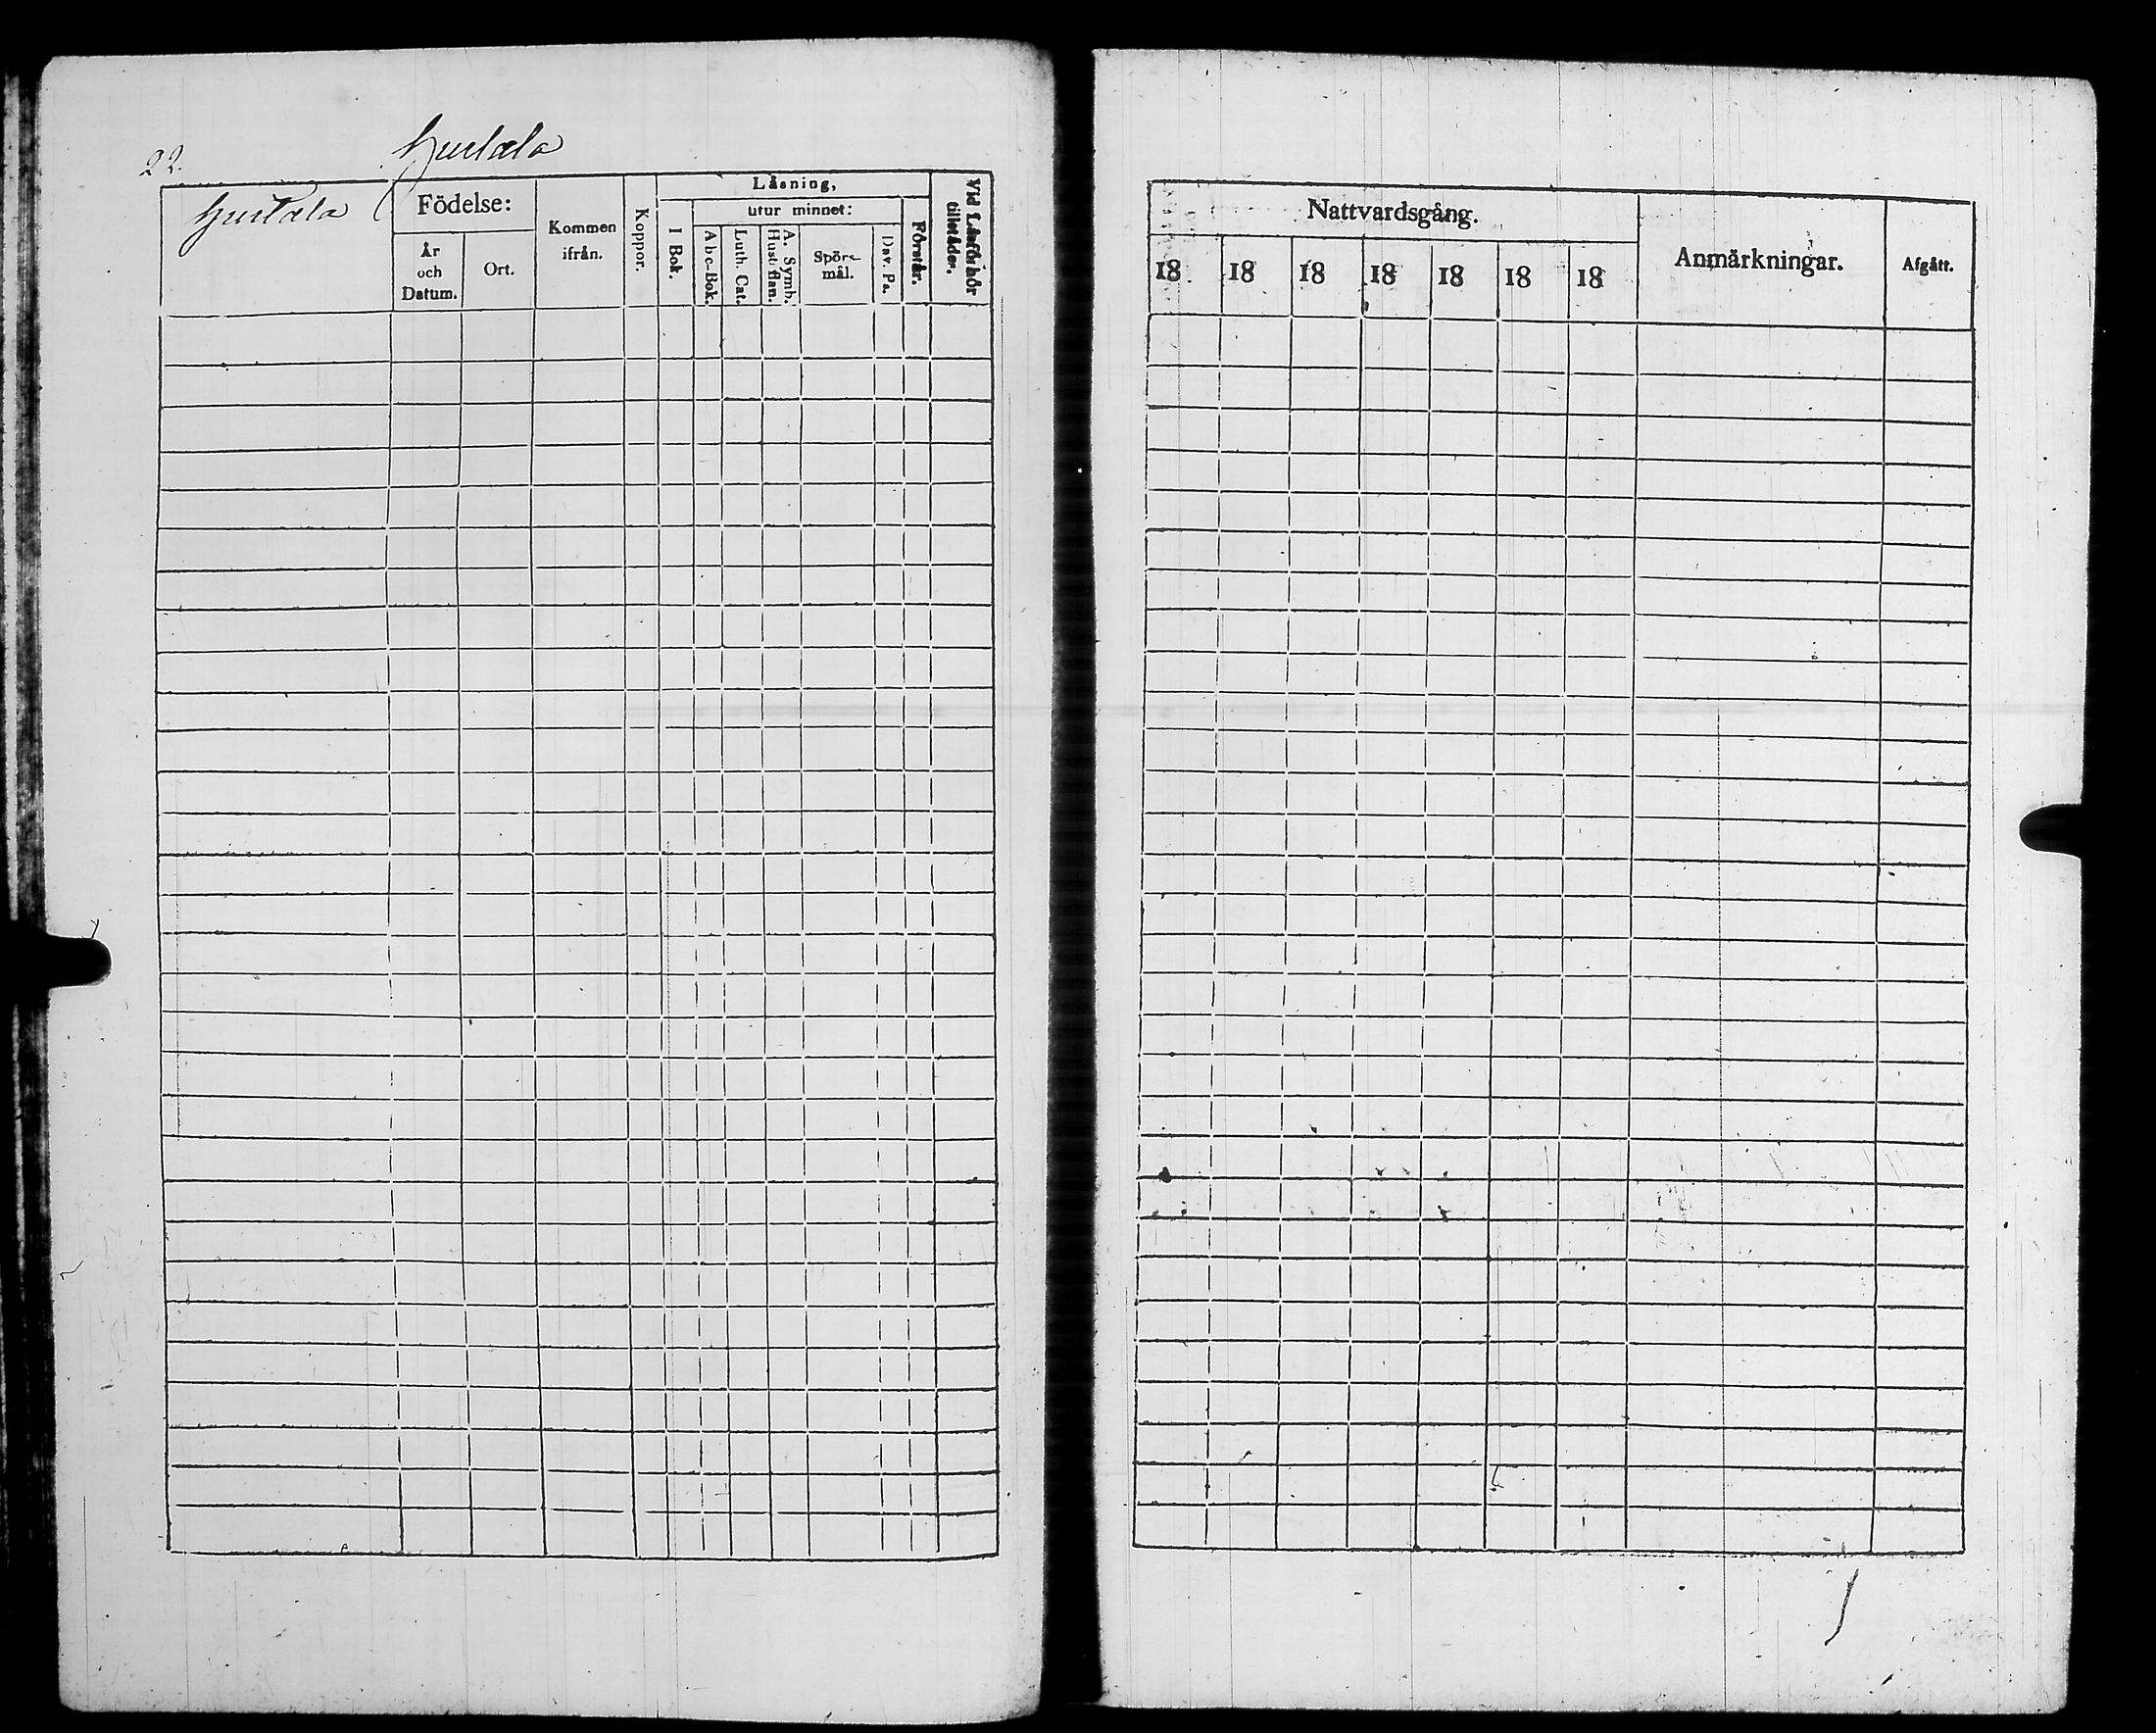 22.
Hurtala
Hurtala
Födelse:
År
och
Datum.
Ort.
Kommen
ifrån.
Koppor.
Läsning,
I Bok.
utur minnet:
Abc-Bok.
Luth. Cat.
A. Symb.
Hust. flan.
Spörs-
mål.
Dav. Ps.
Förstår.
Vid Läsförhör
tillstädes.
Nattvardsgång.
18 18 18 18 18 18 18
Anmärkningar.
Afgått.